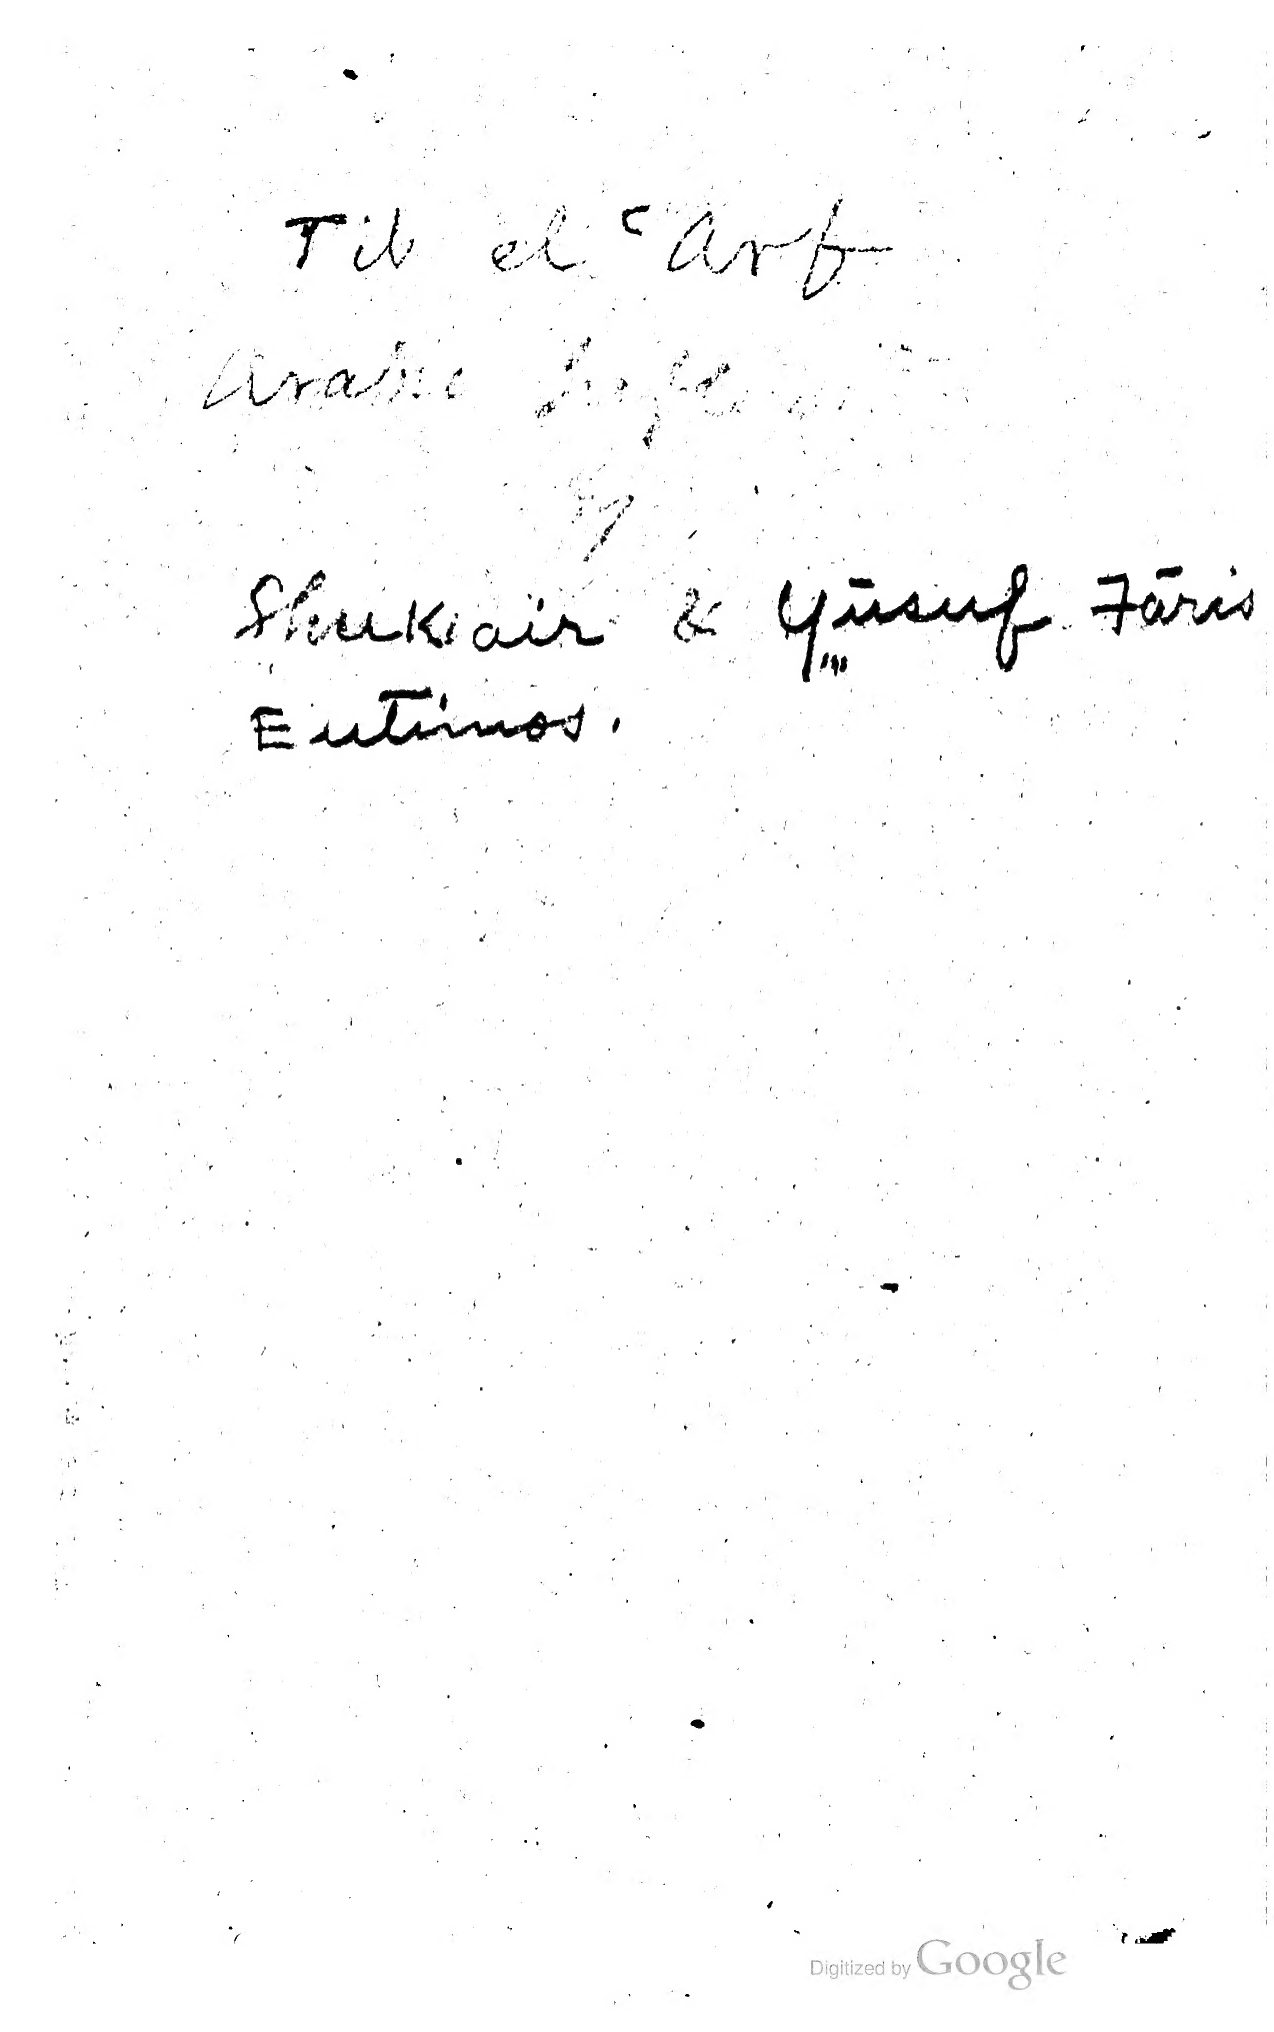 Tib el ʿArf
Arabic
by
Shukair & Yūsuf Fāris
Eutīmos.
Digitized by Google